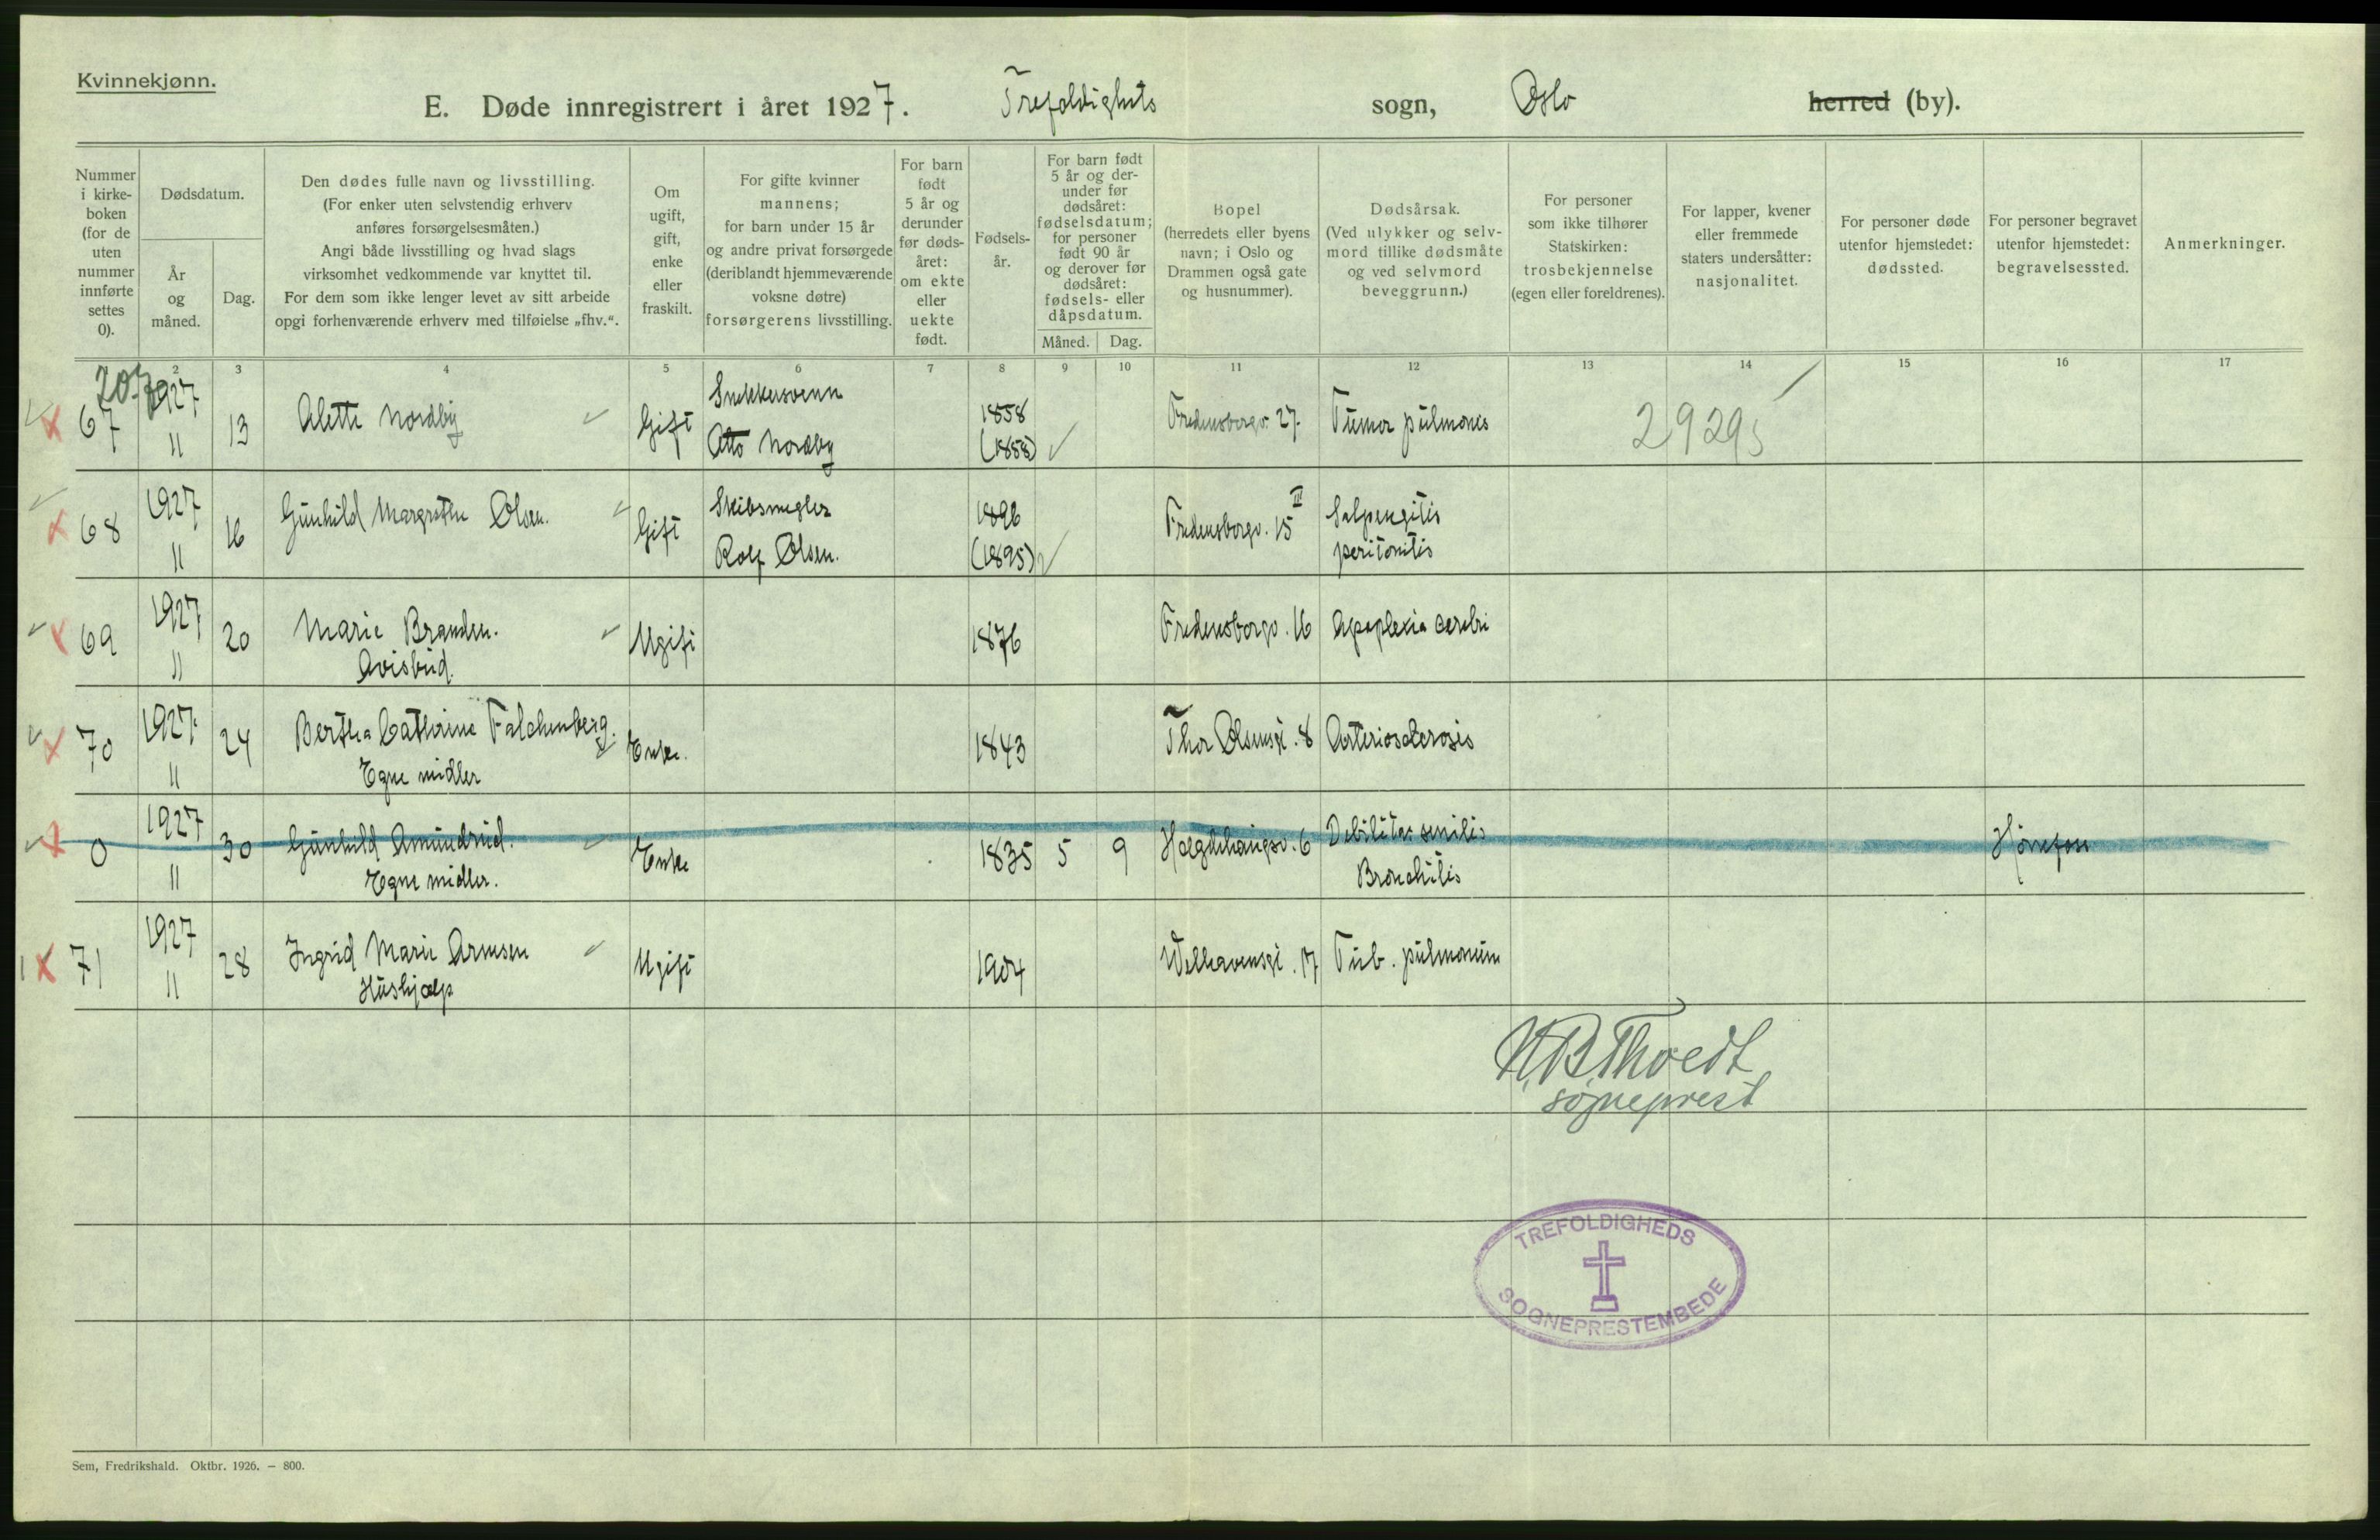 Kvinnekjønn.
E. Døde innregistrert i året 1927. Trefoldighets sogn, Oslo herred (by).
Nummer i kirke-boken (for de uten nummer innførte settes 0).
Dødsdatum.
År og måned.
Dag.
Den dødes fulle navn og livsstilling.
(For enker uten selvstendig erhverv
anføres forsørgelsesmåten.)
Angi både livsstilling og hvad slags
virksomhet vedkommende var knyttet til.
For dem som ikke lenger levet av sitt arbeide
opgi forhenværende erhverv med tilføielse „fhv.“.
Om
ugift,
gift,
enke
eller
fraskilt.
For gifte kvinner
mannens;
for barn under 15 år
og andre privat forsørgede
(deriblandt hjemmeværende
voksne døtre)
forsørgerens livsstilling.
For barn
født
5 år og
derunder
før døds-
året:
om ekte
eller
uekte
født.
Fødsels-
år.
For barn født
5 år og der-
under før
dødsåret:
fødselsdatum;
for personer
født 90 år
og derover før
dødsåret:
fødsels- eller
dåpsdatum.
Måned. Dag.
Bopel
(herredets eller byens
navn; i Oslo og
Drammen også gate
og husnummer).
Dødsårsak.
(Ved ulykker og selv-
mord tillike dødsmåte
og ved selvmord
beveggrunn.)
For personer
som ikke tilhører
Statskirken:
trosbekjennelse
(egen eller foreldrenes).
For lapper, kvener
eller fremmede
staters undersåtter:
nasjonalitet.
For personer døde
utenfor hjemstedet:
dødssted.
For personer begravet
utenfor hjemstedet:
begravelsessted.
Anmerkninger.
2 3 4 5 6 7 8 9 10 11 12 13 14 15 16 17
67 1927 11 13 Alette Nordby Gift Snekkersvenn Otto Nordby 1858 (1858) Fredensborgv. 27. Tumor pulmones 29295
68 1927 11 16 Gunhild Margrethe Olsen. Gift Skibsmegler Rolf Olsen. 1896 (1895) Fredensborgv. 15 II Salpengitis peritonitis
69 1927 11 20 Marie Branden. Ugift 1876 Fredensborgv. 16 Apoplexia cerebri
Avisbud.
70 1927 11 24 Bertha Cathrine Falchenberg. Enke. 1843 Thor Olsensgt. 8 Arteriosclerosis
Egne midler
0 1927 11 30 Gunhild Amundrud. Enke 1835 5 9 Hægdehaugsv. 6 Debilitas senilis Hønefoss
Egne midler. Bronchitis
71 1927 11 28 Ingrid Marie Arnesen Ugift 1904 Welhavensgt. 17 Tub. pulmonum
Hushjælp
sogneprest
TREFOLDIGHEDS
SOGNEPRESTEMBEDE
Sem, Fredrikshald. Oktbr. 1926. — 800.